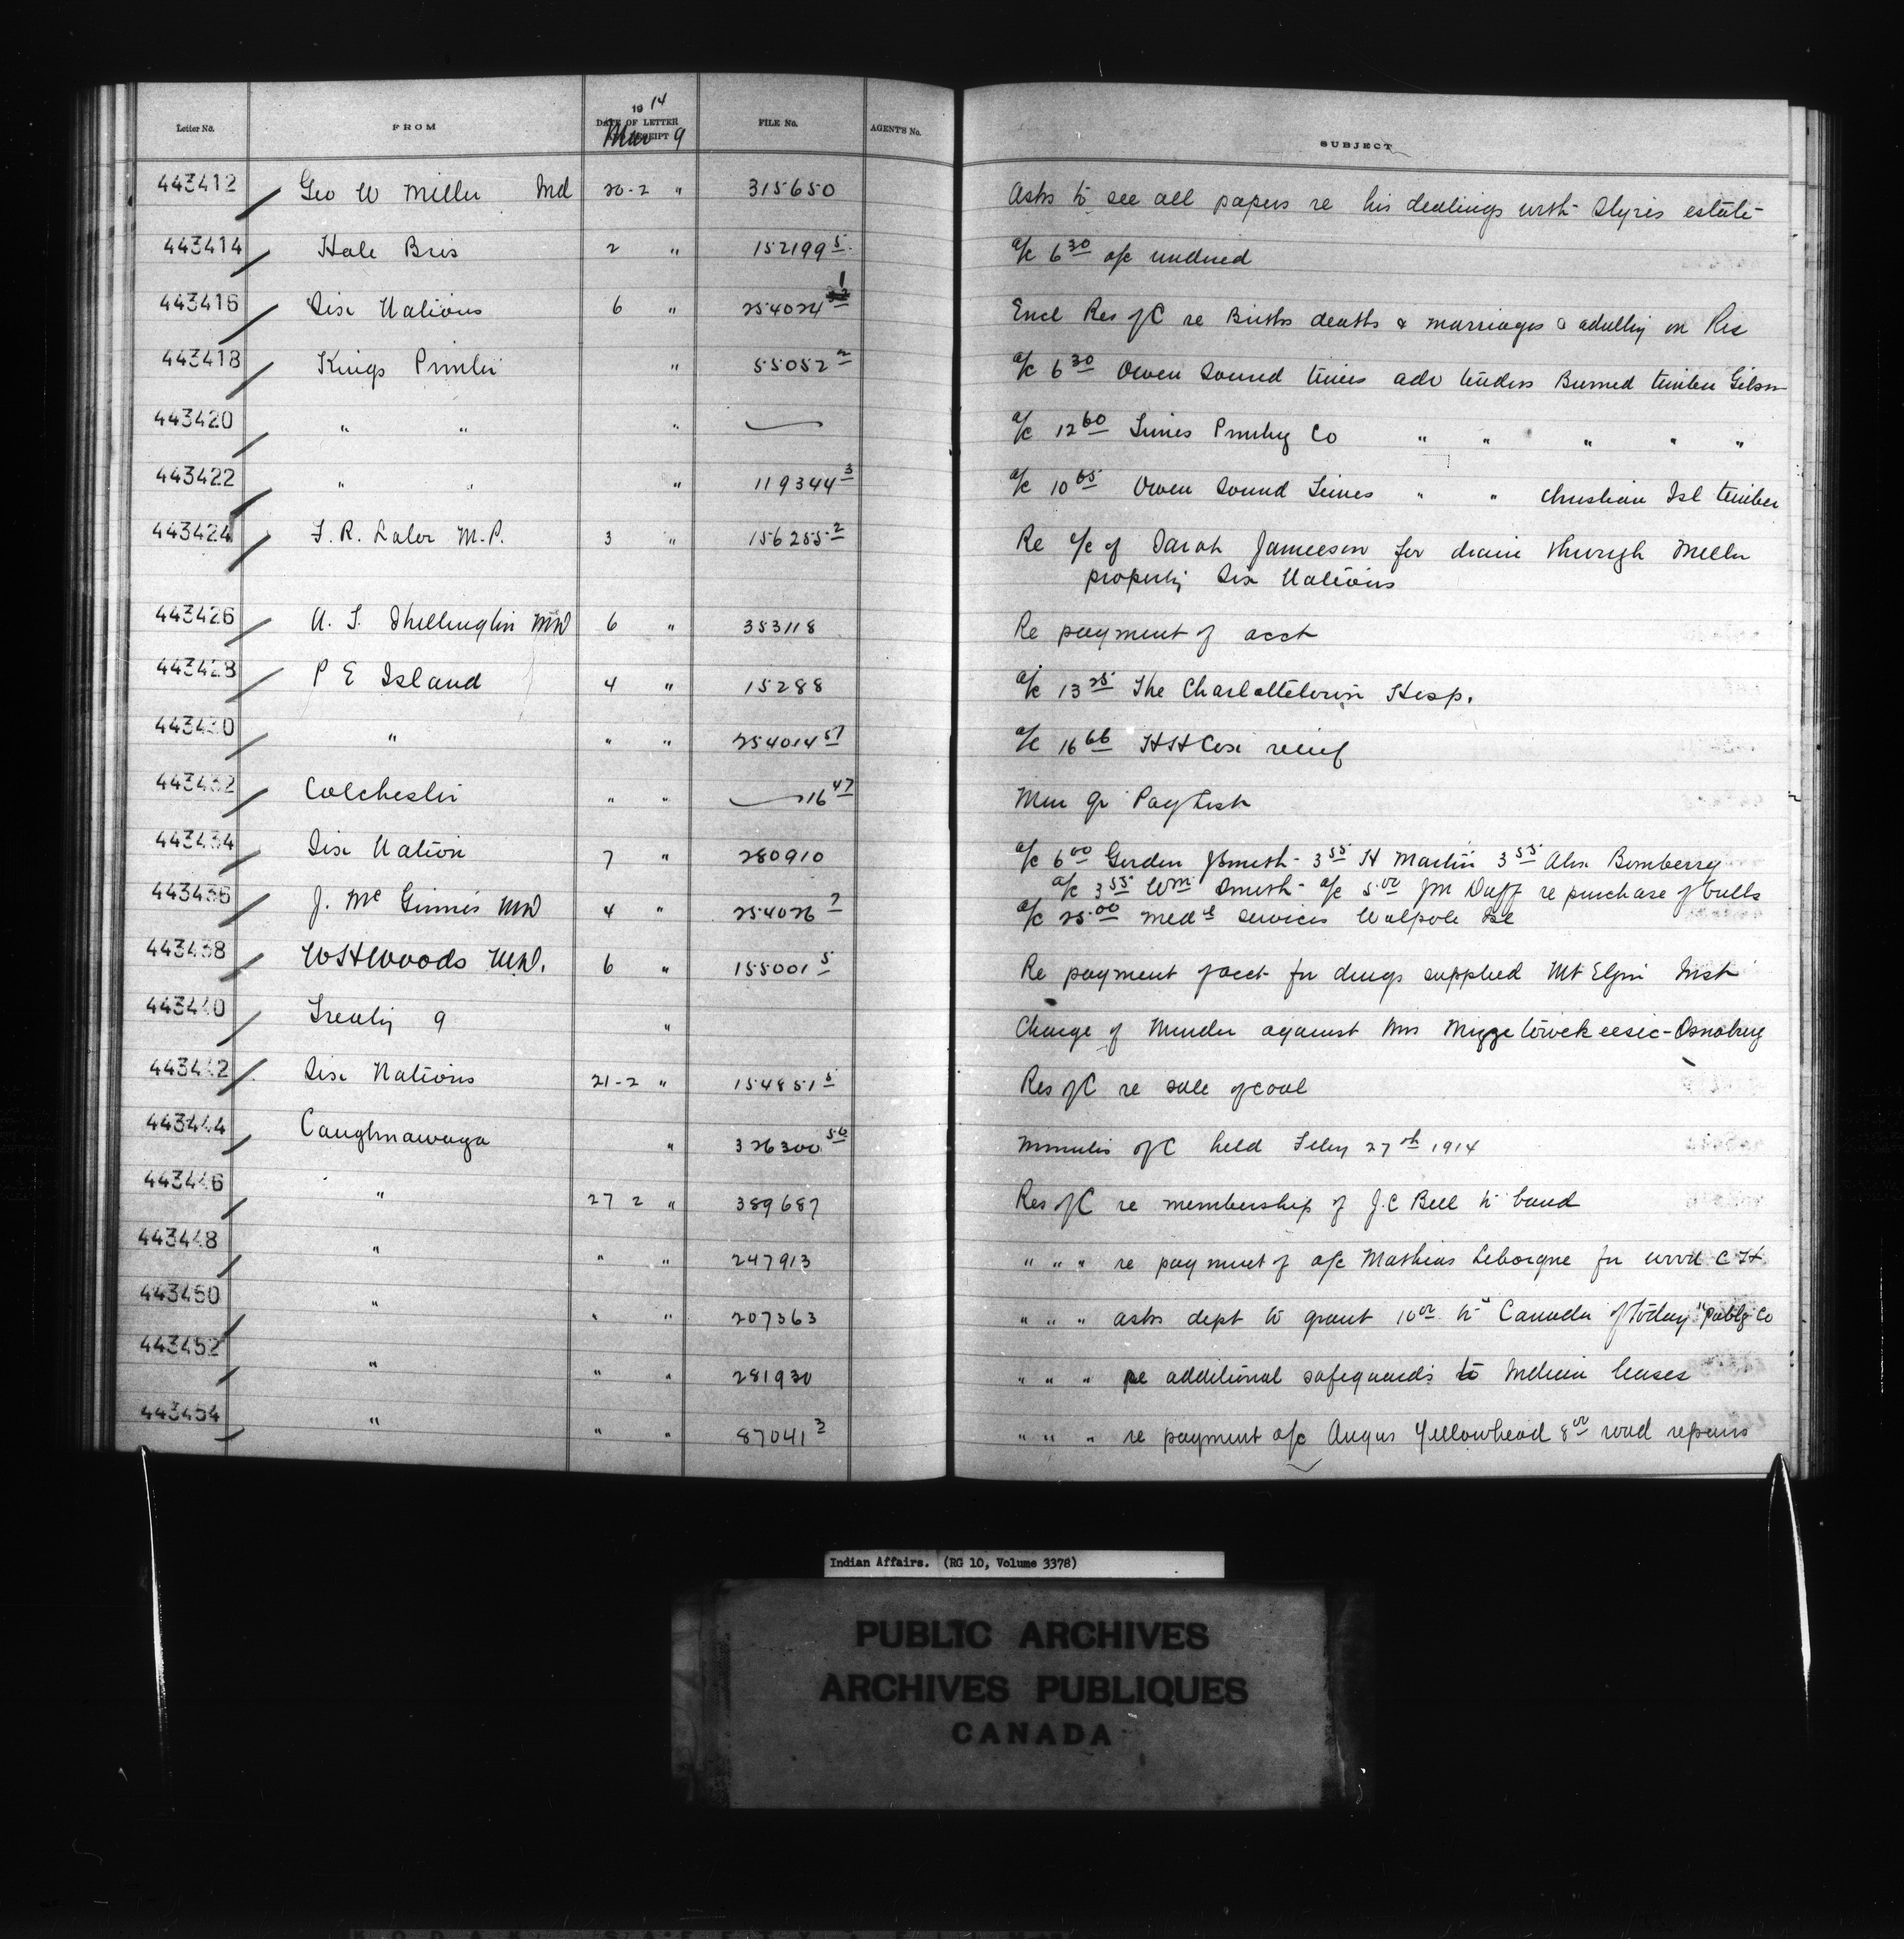 Letter No. FROM 1914 DATE OF LETTER RECEIPT Mar 9 FILE No. AGENT'S No. SUBJECT
443412 Geo W Miller Md 20-2 " 315650 Asks to see all papers re his dealings with Styres estate
443414 Hale Bros 2 " 152199 5 a/c 6 30 a/c undued
443416 Six Nations 6 " 254024 1 Encl Res of C re Births deaths & marriages & adultery on Res
443418 Kings Printer " 55052 2 a/c 6 30 Owen Sound times adv tenders Burned timber
443420 " " " a/c 12 60 Times Printing Co " " " " "
443422 " " " 119344 3 a/c 10 65 Owen Sound Times " " Christian Isl timber
443424 F. R. Lalor M.P. 3 " 156255 2 Re a/c of Sarah Jamieson for drain through Miller
property Six Nations
443426 A. T. Shillington MD 6 " 353118 Re payment of acct
443428 P E Island 4 " 15288 a/c 13 25 The Charlottetown Hosp.
443430 " " " 254014 57 a/c 16 66 HH Cox relief
443432 Colchester " " 16 47 Mar qr Pay List
443434 Six Nation 7 " 280910 a/c 6 00 Gordon J Smith - 3 55 H Martin 3 55 Alex Bomberry
a/c 3 55 Wm Smith - a/c 5 00 JM Duff re purchase of bulls
443436 J. McGinnis MD 4 " 254026 7 a/c 25 00 Medl services Walpole Isl
443438 WH Woods M.D. 6 " 155001 5 Re payment of acct for drugs supplied Mt Elgin Inst
443440 Treaty 9 " Charge of Murder against Mrs -Osnaburg
443442 Six Nations 21-2 " 154851 5 Res of C re sale of coal
443444 Caughnawaga " 326300 56 Minutes of C held Feby 27th 1914
443446 " 27 2 " 389687 Res of C re membership of J.C Bell to band
443448 " " " 247913 " " " re payment of a/c Mathias Leborgne for wood C H
443450 " " " 207363 " " " asks dept to grant 10 00 to "Canada of Today" Publg Co
443452 " " " 281930 " " " re additional safeguards to Indian leases
443454 " " " 87041 3 " " " re payment a/c Angus Yellowhead 8 00 road repairs
Indian Affairs. (RG 10, Volume 3378)
PUBLIC ARCHIVES
ARCHIVES PUBLIQUES
CANADA